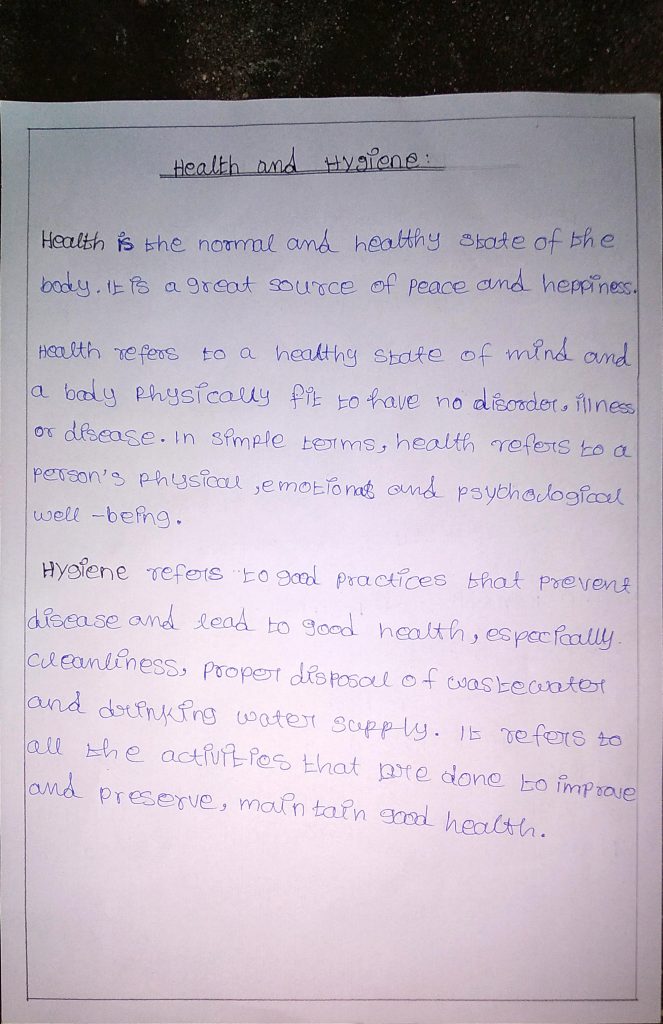 Health and Hygiene:
Health is the normal and healthy state of the
body. It is a great source of peace and heppiness.
Health refers to a healthy state of mind and
a body physically fit to have no disorder, illness
or disease. In simple terms, health refers to a
person's physical, emotional and psychological
well-being.
Hygiene refers to good practices that prevent
disease and lead to good health, especially
cleanliness, proper disposal of wastewater
and drinking water supply. It refers to
all the activities that are done to improve
and preserve, maintain good health.